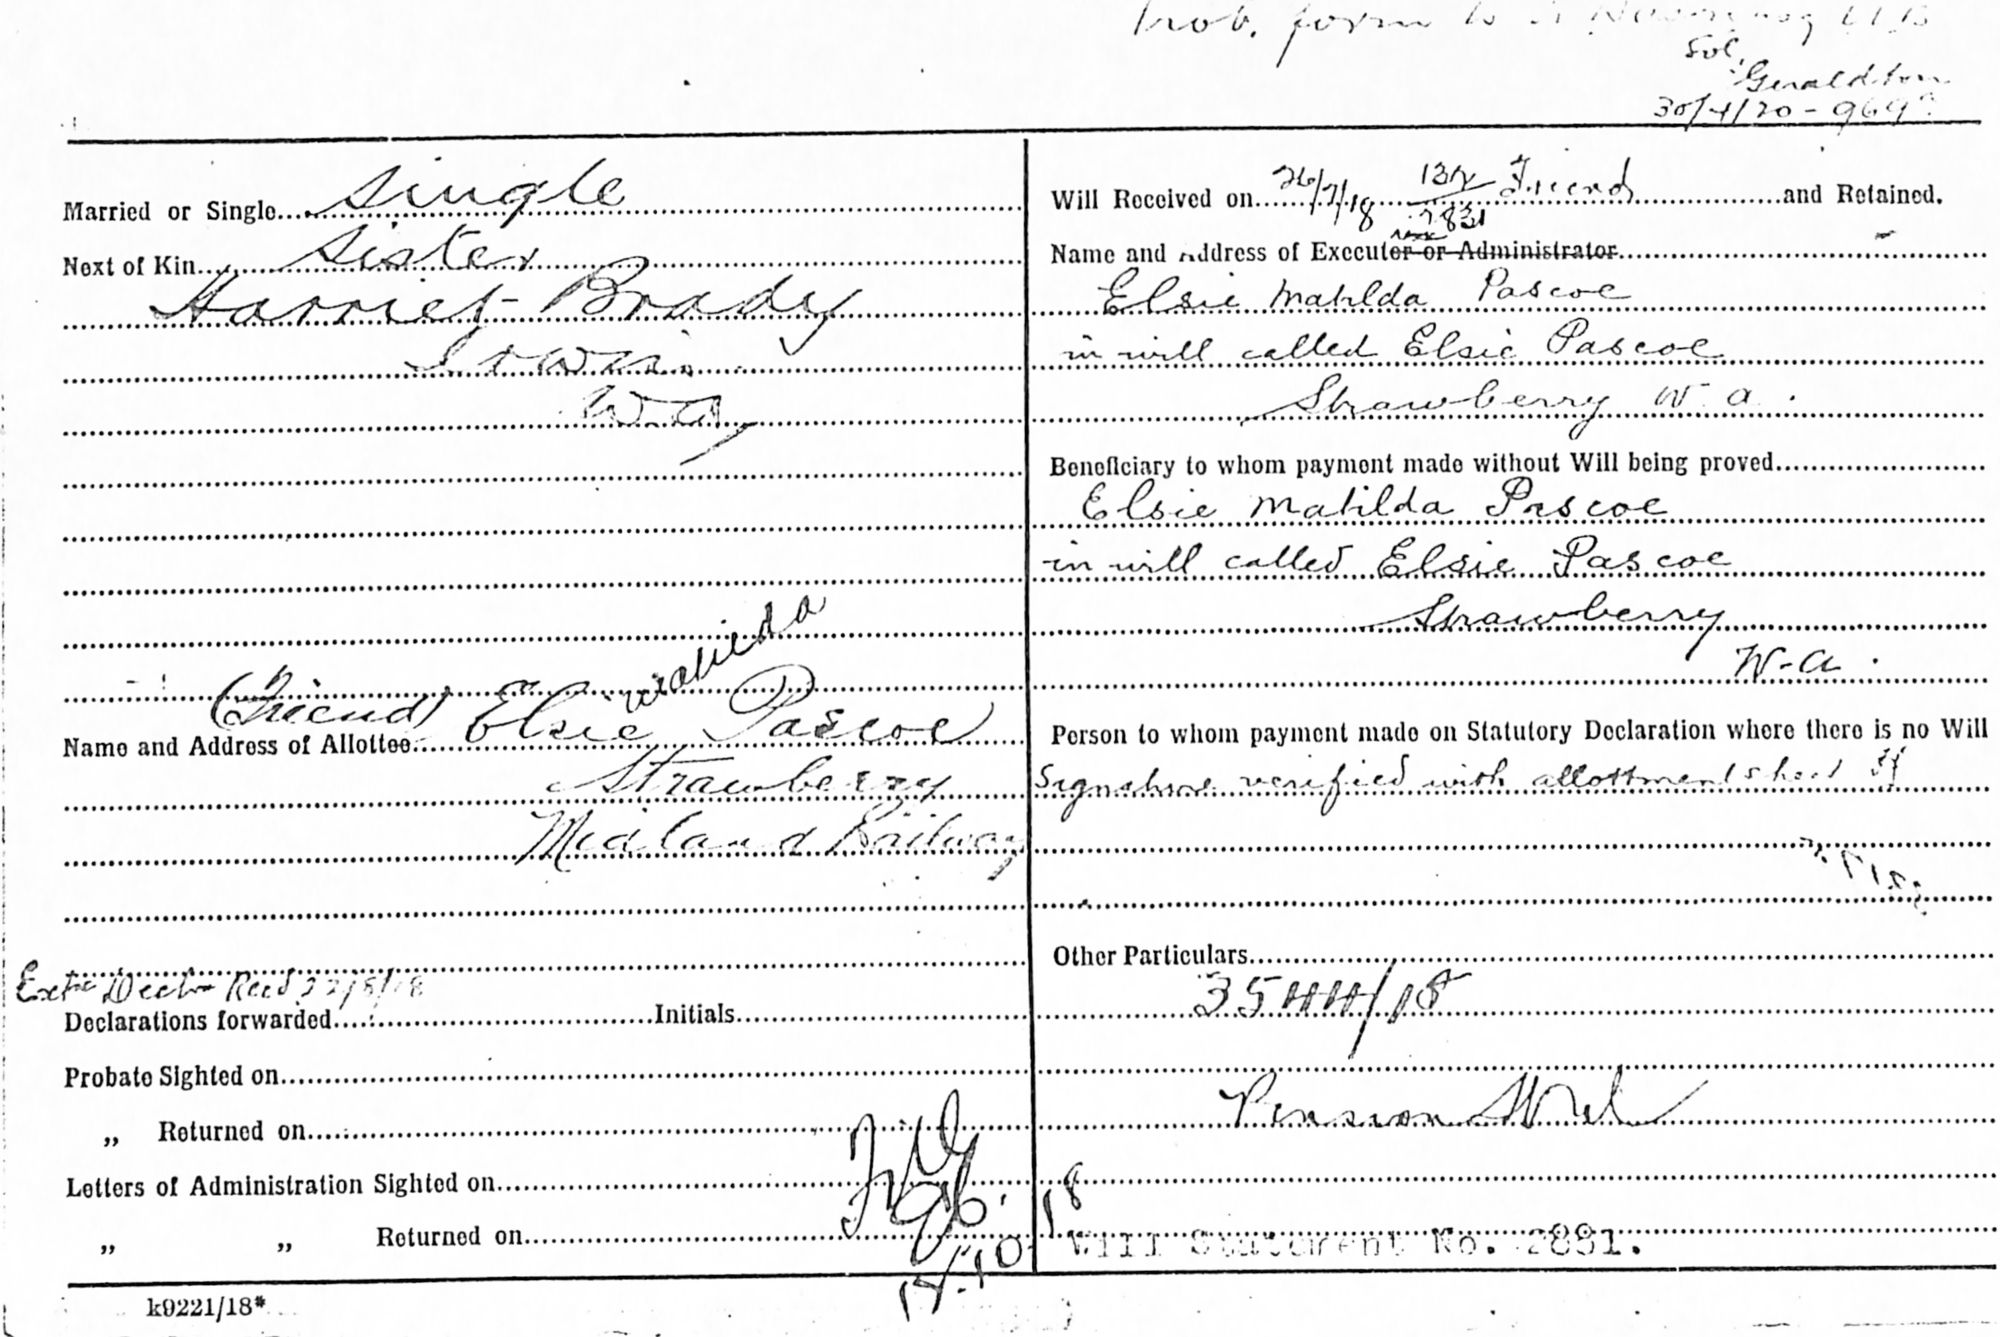 Prob. form to
Sol.
Geraldton
30/4/20 - 969
Married or Single.... Single
Next of Kin.... Sister
Harriet Brady
Irwin
W.A.
(Friend) Elsie Matilda Pascoe
Name and Address of Allottee....
Strawberry
Midland Railway
Recd 22/8/18
Declarations forwarded.... Initials....
Probate Sighted on....
„ Returned on....
Letters of Administration Sighted on....
„ „ Returned on....
File
14.10.18
k9221/18*
Will Received on.... 26/7/18 Friend ....and Retained.
2831
Name and Address of Executor or Administrator....
Elsie Matilda Pascoe
in will called Elsie Pascoe
Strawberry W.A.
Beneficiary to whom payment made without Will being proved....
Elsie Matilda Pascoe
in will called Elsie Pascoe
Strawberry
W.A.
Person to whom payment made on Statutory Declaration where there is no Will
Signature verified with allottment sheet
Other Particulars....
35444/18
Pension
Will Statement No. 2831.